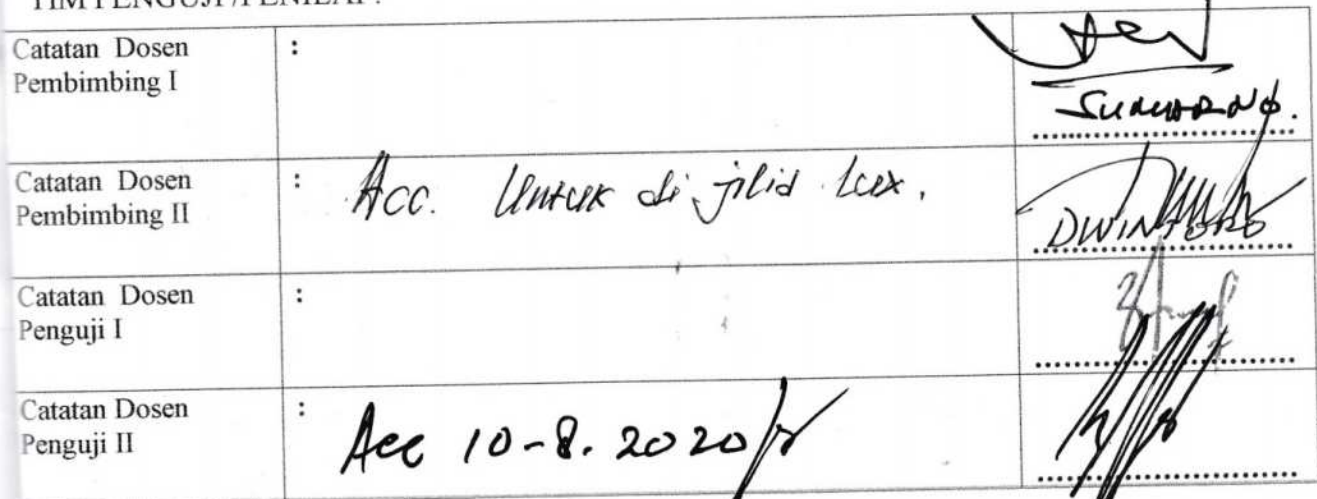 TIM PENGUJI /PENILAI :
Catatan Dosen
Pembimbing I
:
SUMARNO.
Catatan Dosen
Pembimbing II
: Acc. Untuk di jilid lux.
DWINTORO
Catatan Dosen
Penguji I
:
Catatan Dosen
Penguji II
: Acc 10-8. 2020